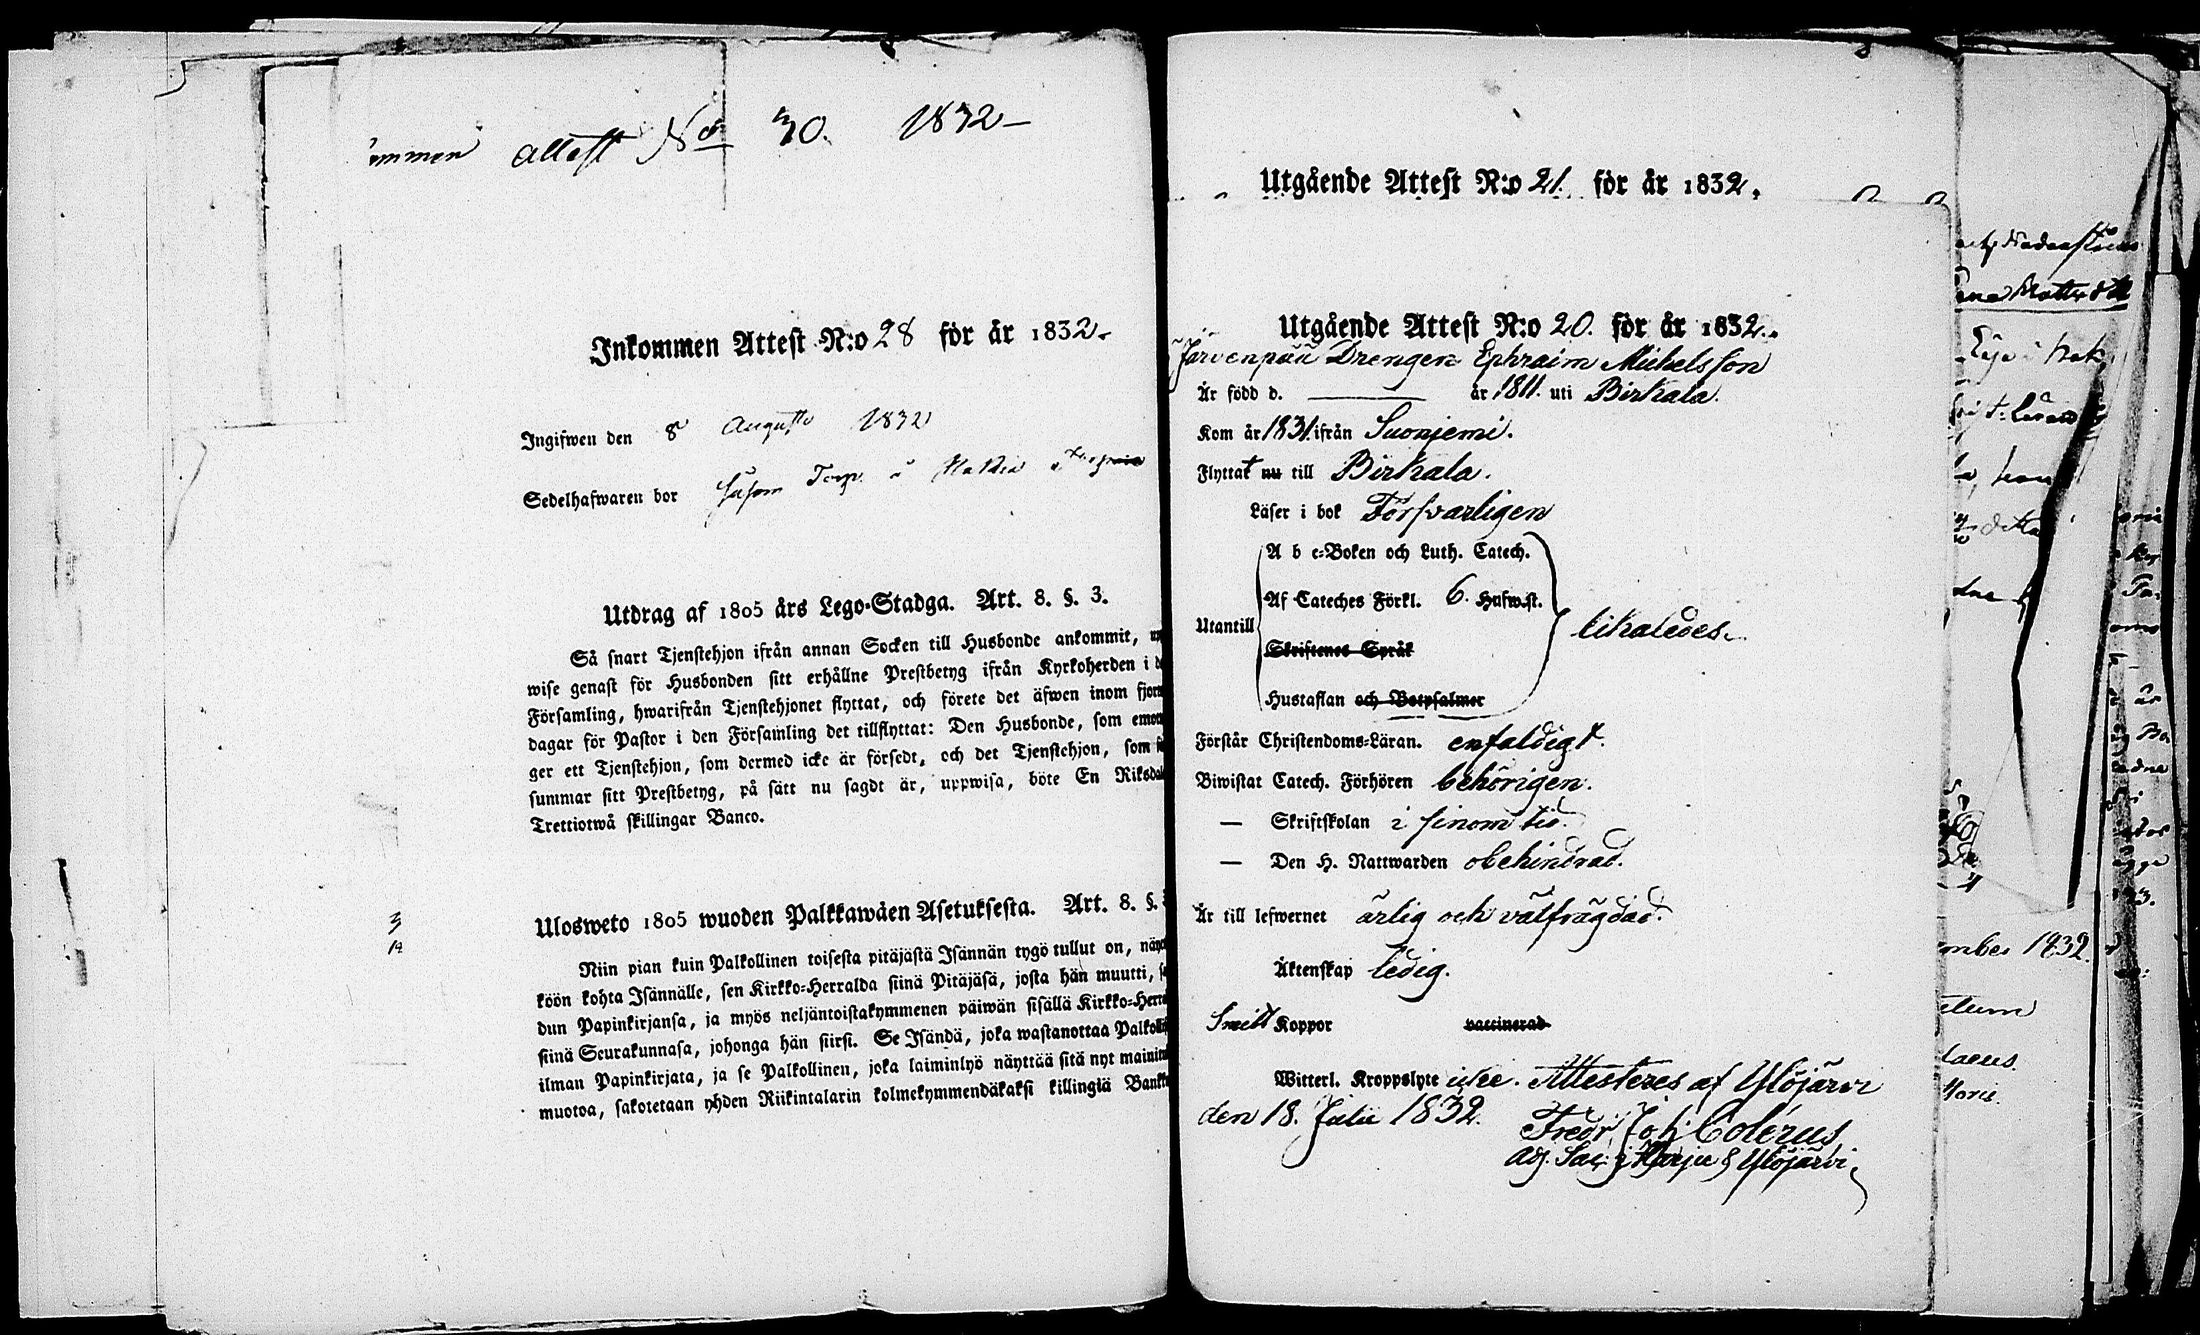 attest No 30. 1832
Inkommen Attest N:o 28 för år 1832
Ingifwen den 8 Augusti 1832
Sedelhafwaren bor såsom Torp.
Utdrag af 1805 års Lego-Stadga. Art. 8. §. 3.
Så snart Tjenstehjon ifrån annan Socken till Husbonde ankommit,
wise genast för Husbonden sitt erhållne Prestbetyg ifrån Kyrkoherden i
Församling, hwarifrån Tjenstehjonet flyttat, och förete det äfwen inom
dagar för Pastor i den Församling det tillflyttat: Den Husbonde, som
ger ett Tjenstehjon, som dermed icke är försedt, och det Tjenstehjon, som
summar sitt Prestbetyg, på sätt nu sagdt är, uppwisa, böte En
Trettiotwå skillingar Banco.
Ulosweto 1805 wuoden Palkkawäen Asetuksesta. Art. 8. §.
3
Niin pian kuin Palkollinen toisesta pitäjästä Isännän tygö tullut on,
köön kohta Isännälle, sen Kirkko-Herralda siinä Pitäjäsä, josta hän muutti,
dun Papinkirjansa, ja myös neljäntoistakymmenen päiwän sisällä
siinä Seurakunnasa, johonga hän siirsi. Se Isändä, joka wastanottaa
ilman Papinkirjata, ja se Palkollinen, joka laiminlyö näyttää sitä nyt
muotoa, sakotetaan yhden Riikintalarin kolmekymmendäkaksi killingiä
Utgående Attest N:o 21. för år 1832.
Utgående Attest N:o 20. för år 1832.
Järvenpää Drengen Ephraim Michelsson
Är född d. år 1811. uti Birkala.
Kom år 1831. ifrån Suonjemi.
Flyttat nu till Birkala.
Läser i bok Försvarligen
A b c-Boken och Luth. Catech.
Af Cateches Förkl. 6. Hufwst.
Utantill likaledes.
Skriftenes Språk
Hustaflan och Botpsalmer
Förstår Christendoms-Läran. enfaldigt.
Biwistat Catech. Förhören behörigen.
— Skriftskolan i sinom tid.
— Den H. Nattwarden obehindrad.
Är till lefwernet ärlig och välfrägdad.
Äktenskap ledig.
Koppor vaccinerad
Witterl. Kroppslyte icke. Attesteres af Ylöjärvi
den 18. Julii 1832. Fredr. Joh. Colérus
Adj. Sac. i Harju & Ylöjärvi
1832